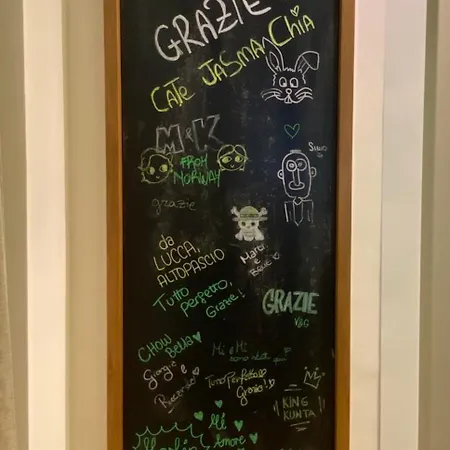 GRAZIE
CATE JASMA Chia
M&K
FROM
NORWAY
Simo
grazie
da
LUCCA,
ALTOPASCIO
Tutto
perfetto,
Grazie!
Marti
e
GRAZIE
V&G
CHOW
Bella
Giorgio e
Mi e Mi
Tutto Perfetto
Grazie!
KING
KUNTA
Amore